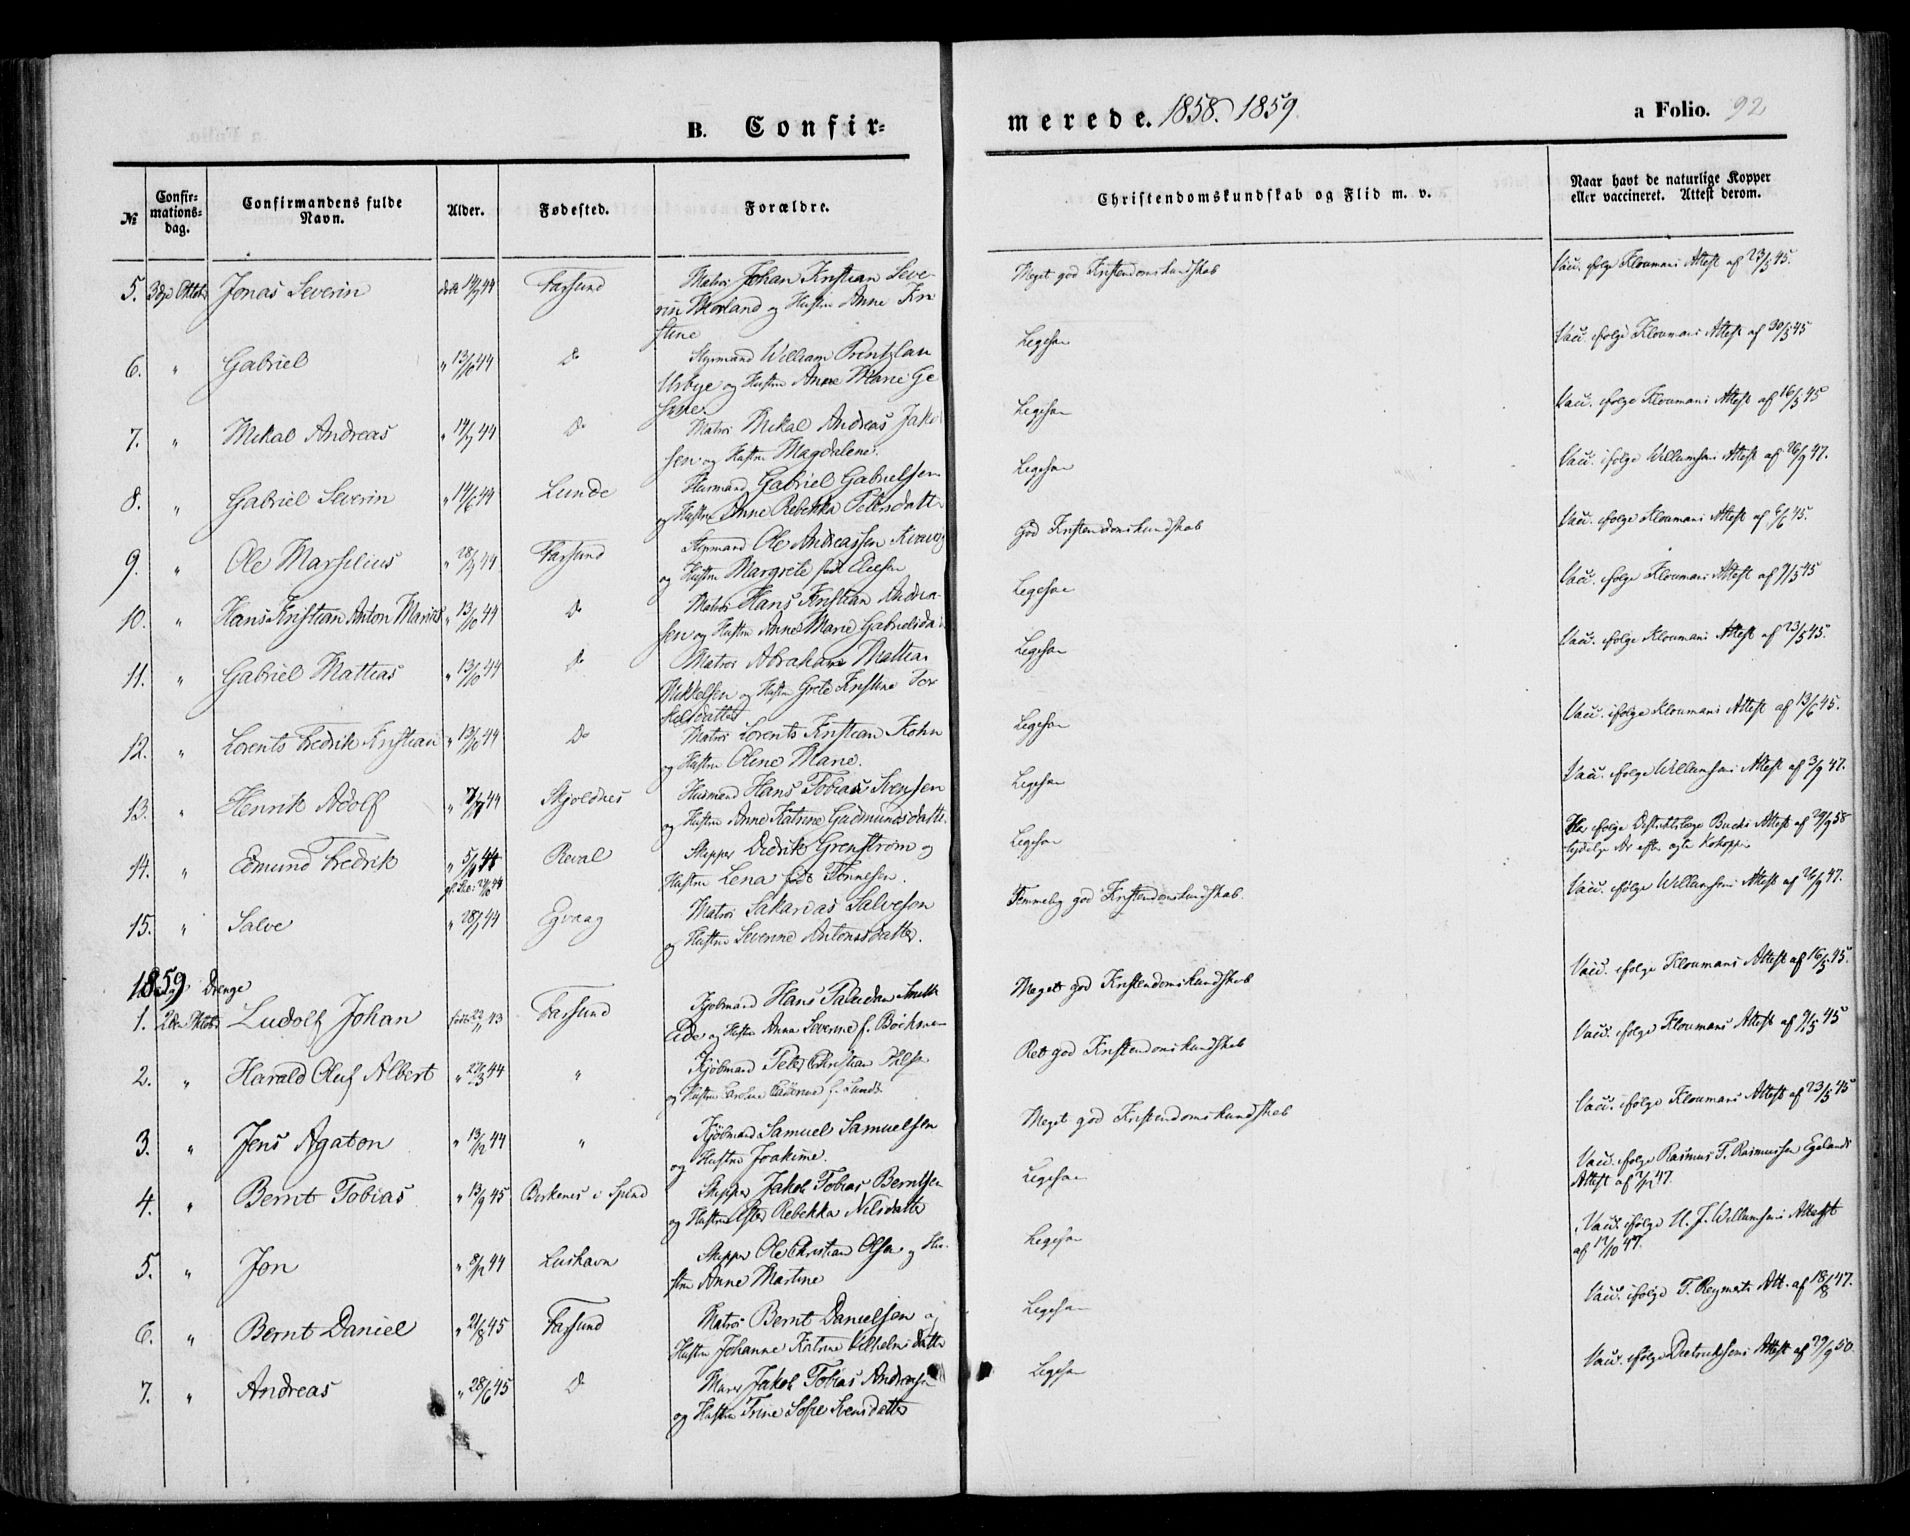 B. Confir=
merede. 1858. 1859.
a Folio. 92
№
Confir-
mations-
dag.
Confirmandens fulde
Navn.
Alder.
Fødested.
Forældre.
Christendomskundskab og Flid m. v.
Naar havt de naturlige Kopper
eller vaccineret. Attest derom.
5. Jonas Severin Farsund Matros Johan Kristian Seve-
rin Morland og Hustru Anne Kri
stine
Meget god Kristendomskundskab Vacc. ifølge Kloumans Attest af 23/5 45.
6. " Gabriel " 13/6 44 Do Styrmand William
og Hustru Anne Marie Ge
sine.
Ligesaa Vacc. ifølge Kloumans Attest af 30/5 45
7. " Mikal Andreas " 14/7 44 Do Matros Mikal Andreas Jakob
sen og Hustru Magdalene.
Ligesaa Vacc. ifølge Kloumans Attest af 16/5 45
8. " Gabriel Severin " 14/6 44 Lunde Husmand Gabriel Gabrielsen
og Hustru Anne Rebekka Petersdatter
Ligesaa Vacc. ifølge Willumsens Attest af 26/9 47.
9. " Ole Marsilius Farsund Styrmand Ole Andreassen
og Hustru Margrete født Elieson
God Kristendomskundskab Vacc. ifølge Kloumans Attest af 6/6 45.
10. " Hans Kristian Anton Marius " 13/10 44 Do Matros Hans Kristian Andrea
sen og Hustru Anne Marie Gabrielsda
Ligesaa Vacc. ifølge Kloumans Attest af 9/5 45
11. " Gabriel Mattias " 13/10 44 Do Matros Abraham Mattias
Mikkelsen og Hustru Grete Kristine Tor
kelsdatter
Ligesaa Vacc. ifølge Kloumans Attest af 23/5 45.
12. " Lorents Fredrik Kristian " 13/10 44 Do Matros Lorents Kristian Kohn
og Hustru Oline Marie.
Ligesaa Vacc. ifølge Kloumans Attest af 13/6 45.
13. " Henrik Adolf Skjoldnes Husmand Hans Tobias Svensen
og Hustru Anne Katrine Gudmundsdatter
Ligesaa Vacc. ifølge Willumsens Attest af 3/9 47.
14. " Edmund Fredrik Reval Skipper Didrik Grenstrøm og
Hustru Lena født Tønnesen.
Ligesaa ifølge Distriktslæge Bucks Attest af 29/9 58
tydelige Ar efter ægte Kokopper
15. " Salve Egvaag Matros Sakarias Salveson
og Hustru Severine Antonsdatter.
Temmelig god Kristendomskundskab. Vacc. ifølge Willumsens Attest af 26/9 47.
1859
Drenge
1. Ludolf Johan Farsund Kjøbmand Hans Paludan Smith
Eide og Hustru Anna Severine f. Bøckman
Meget god Kristendomskundskab Vacc. ifølge Kloumans Attest af 16/5 45.
2. " Harald Oluf Albert " Kjøbmand Peter Christian
og Hustru f. Lund.
Ret god Kristendomskundskab Vacc. ifølge Kloumans Attest af 9/5 45
3. " Jens Agaton " 13/12 44 " Kjøbmand Samuel Samuelsen
og Hustru Joakime.
Meget god Kristendomskundskab Vacc. ifølge Kloumans Attest af 23/5 45
4. " Bernt Tobias " 13/9 45 Borkenes i Spind Skipper Jakob Tobias Berntsen
og Hustru Rebekka Nilsdatter
Ligesaa Vacc. ifølge Rasmus T. Rasmussen Egelands
Attest af
5. " Jon Lushavn Skipper Ole Christian Olsen og Hu-
stru Anne Martine
Ligesaa Vacc. ifølge H. J. Willumsens Attest
af
6. " Bernt Daniel " 21/8 45 Farsund Matros Bernt Danielsen og
Hustru Johanne Katrine Vilhelmsdatter
Ligesaa Vacc. ifølge T. Reymerts Att. af 18/8 47.
7. " Andreas " 28/6 45 Do Jakob Tobias Andreasen
og Hustru Trine Sofie
Ligesaa Vacc. ifølge Attest af